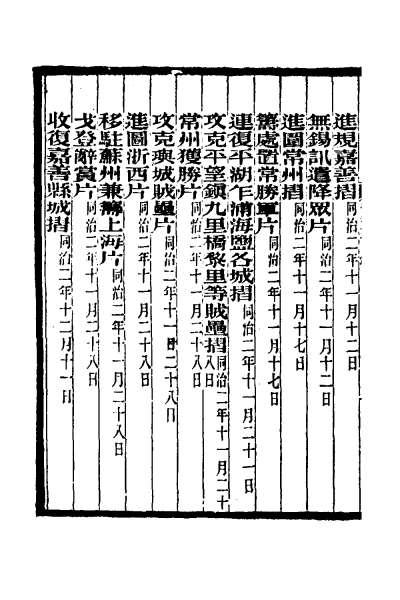 進規嘉善摺同治二年十一月十二日
無錫訊遣降眾片同治二年十一月十二日
進圍常州摺同治二年十一月十七日
籌處置常勝軍片同治二年十一月十七日
連復平湖乍浦海鹽各城摺同治二年十一月二十一日
攻克平望鎮九里橋黎里等賊壘摺同治二年十一月二十八日
常州獲勝片同治二年十一月二十八日
攻克城賊壘片同治二年十一月二十八日
進圖浙西片同治二年十一月二十八日
移駐蘇州兼籌上海片同治二年十一月二十八日
戈登辭賞片同治二年十一月二十八日
收復嘉善縣城摺同治二年十二月十一日